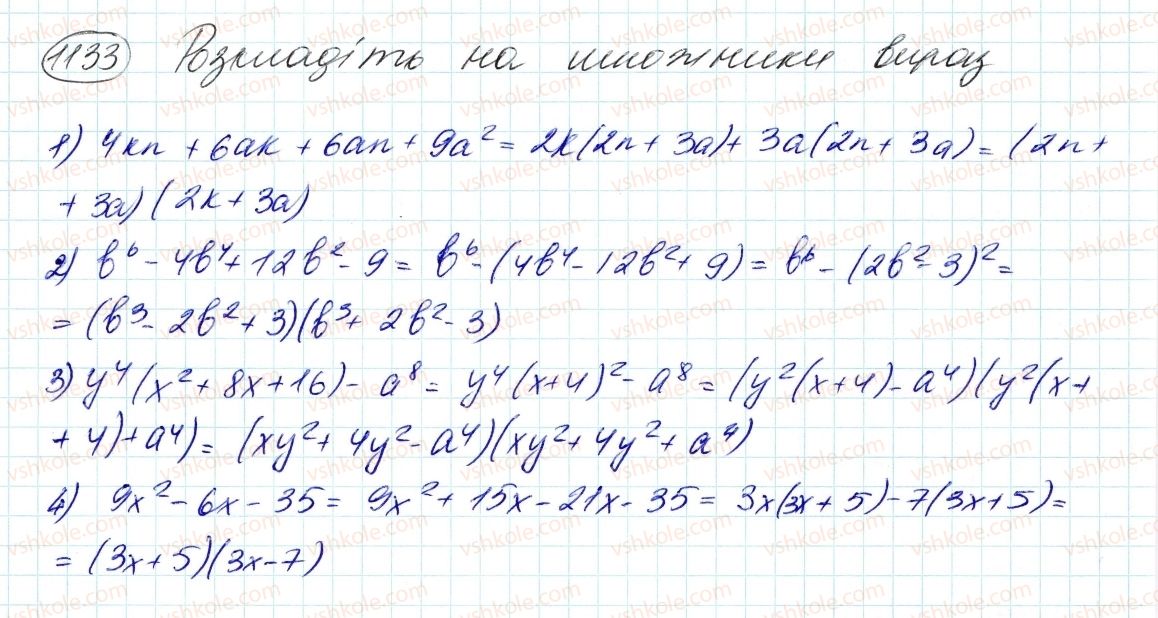 1133 Розкладіть на множники вираз
1) 4kn + 6ak + 6an + 9a² = 2k(2n + 3a) + 3a(2n + 3a) = (2n +
+ 3a)(2k + 3a)
2) b⁶ - 4b⁴ + 12b² - 9 = b⁶ - (4b⁴ - 12b² + 9) = b⁶ - (2b² - 3)² =
= (b³ - 2b² + 3)(b³ + 2b² - 3)
3) y⁴(x² + 8x + 16) - a⁸ = y⁴(x + 4)² - a⁸ = (y²(x + 4) - a⁴)(y²(x +
+ 4) + a⁴) = (xy² + 4y² - a⁴)(xy² + 4y² + a⁴)
4) 9x² - 6x - 35 = 9x² + 15x - 21x - 35 = 3x(3x + 5) - 7(3x + 5) =
= (3x + 5)(3x - 7)